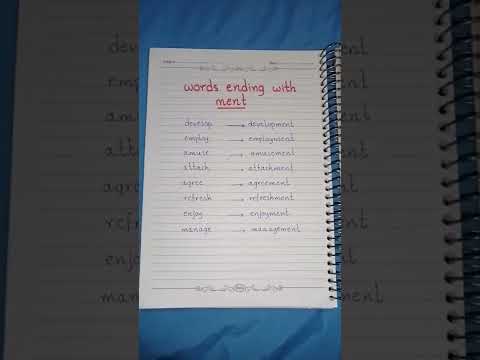 words ending with
ment
develop → development
employ → employment
amuse → amusement
attach → attachment
agree → agreement
refresh → refreshment
enjoy → enjoyment
manage → management